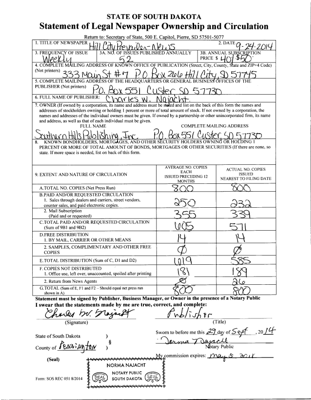 STATE OF SOUTH DAKOTA
Statement of Legal Newspaper Ownership and Circulation
Return to: Secretary of State, 500 E. Capitol, Pierre, SD 57501-5077
1. TITLE OF NEWSPAPER Hill City Prevailer-News 2. DATE 9-29-2014
3. FREQUENCY OF ISSUE Weekly
3A. NO. OF ISSUES PUBLISHED ANNUALLY 52
3B. ANNUAL SUBSCRIPTION PRICE $
4. COMPLETE MAILING ADDRESS OF KNOWN OFFICE OF PUBLICATION (Street, City, County, State and ZIP+4 Code)
(Not printers) 333 Main St #1 P.O. Box 266 Hill City, SD 57745
5. COMPLETE MAILING ADDRESS OF THE HEADQUARTERS OR GENERAL BUSINESS OFFICE OF THE
PUBLISHER (Not printers) P.O. Box 551 Custer, SD 57730
6. FULL NAME OF PUBLISHER: Charles W. Najacht
7. OWNER (If owned by a corporation, its name and address must be stated and list on the back of this form the names and
addresses of stockholders owning or holding 1 percent or more of total amount of stock. If not owned by a corporation, the
names and addresses of the individual owners must be given. If owned by a partnership or other unincorporated firm, its name
and address, as well as that of each individual must be given.
FULL NAME COMPLETE MAILING ADDRESS
Southern Hills Publishing, Inc. P.O. Box 551 Custer, SD 57730
8. KNOWN BONDHOLDERS, MORTGAGEES, AND OTHER SECURITY HOLDERS OWNING OR HOLDING 1
PERCENT OR MORE OF TOTAL AMOUNT OF BONDS, MORTGAGES OR OTHER SECURITIES (If there are none, so
state. If more space is needed, list on back of this form.
9. EXTENT AND NATURE OF CIRCULATION
AVERAGE NO. COPIES
EACH
ISSUED PRECEDING 12
MONTHS
ACTUAL NO. COPIES
ISSUED
NEAREST TO FILING DATE
A. TOTAL NO. COPIES (Net Press Run) 800 800
B. PAID AND/OR REQUESTED CIRCULATION
1. Sales through dealers and carriers, street vendors,
counter sales, and paid electronic copies. 250 232
2. Mail Subscription
(Paid and or requested) 355 339
C. TOTAL PAID AND/OR REQUESTED CIRCULATION
(Sum of 9B1 and 9B2) 605 571
D. FREE DISTRIBUTION
1. BY MAIL, CARRIER OR OTHER MEANS 14 14
2. SAMPLES, COMPLIMENTARY AND OTHER FREE
COPIES Ø Ø
E. TOTAL DISTRIBUTION (Sum of C, D1 and D2) 619 585
F. COPIES NOT DISTRIBUTED
1. Office use, left over, unaccounted, spoiled after printing 181 189
2. Return from News Agents 26
G. TOTAL (Sum of E, F1 and F2 - Should equal net press run
shown in A) 800 800
Statement must be signed by Publisher, Business Manager, or Owner in the presence of a Notary Public
I swear that the statements made by me are true, correct, and complete:
Charles W. Najacht Publisher
(Signature) (Title)
State of South Dakota )
§
County of Pennington )
Sworn to before me this 29 day of Sept, 2014
Norma Najacht
Notary Public
(Seal)
My commission expires:
NORMA NAJACHT
NOTARY PUBLIC
SOUTH DAKOTA
SEAL
SEAL
Form: SOS REC 051 8/2014